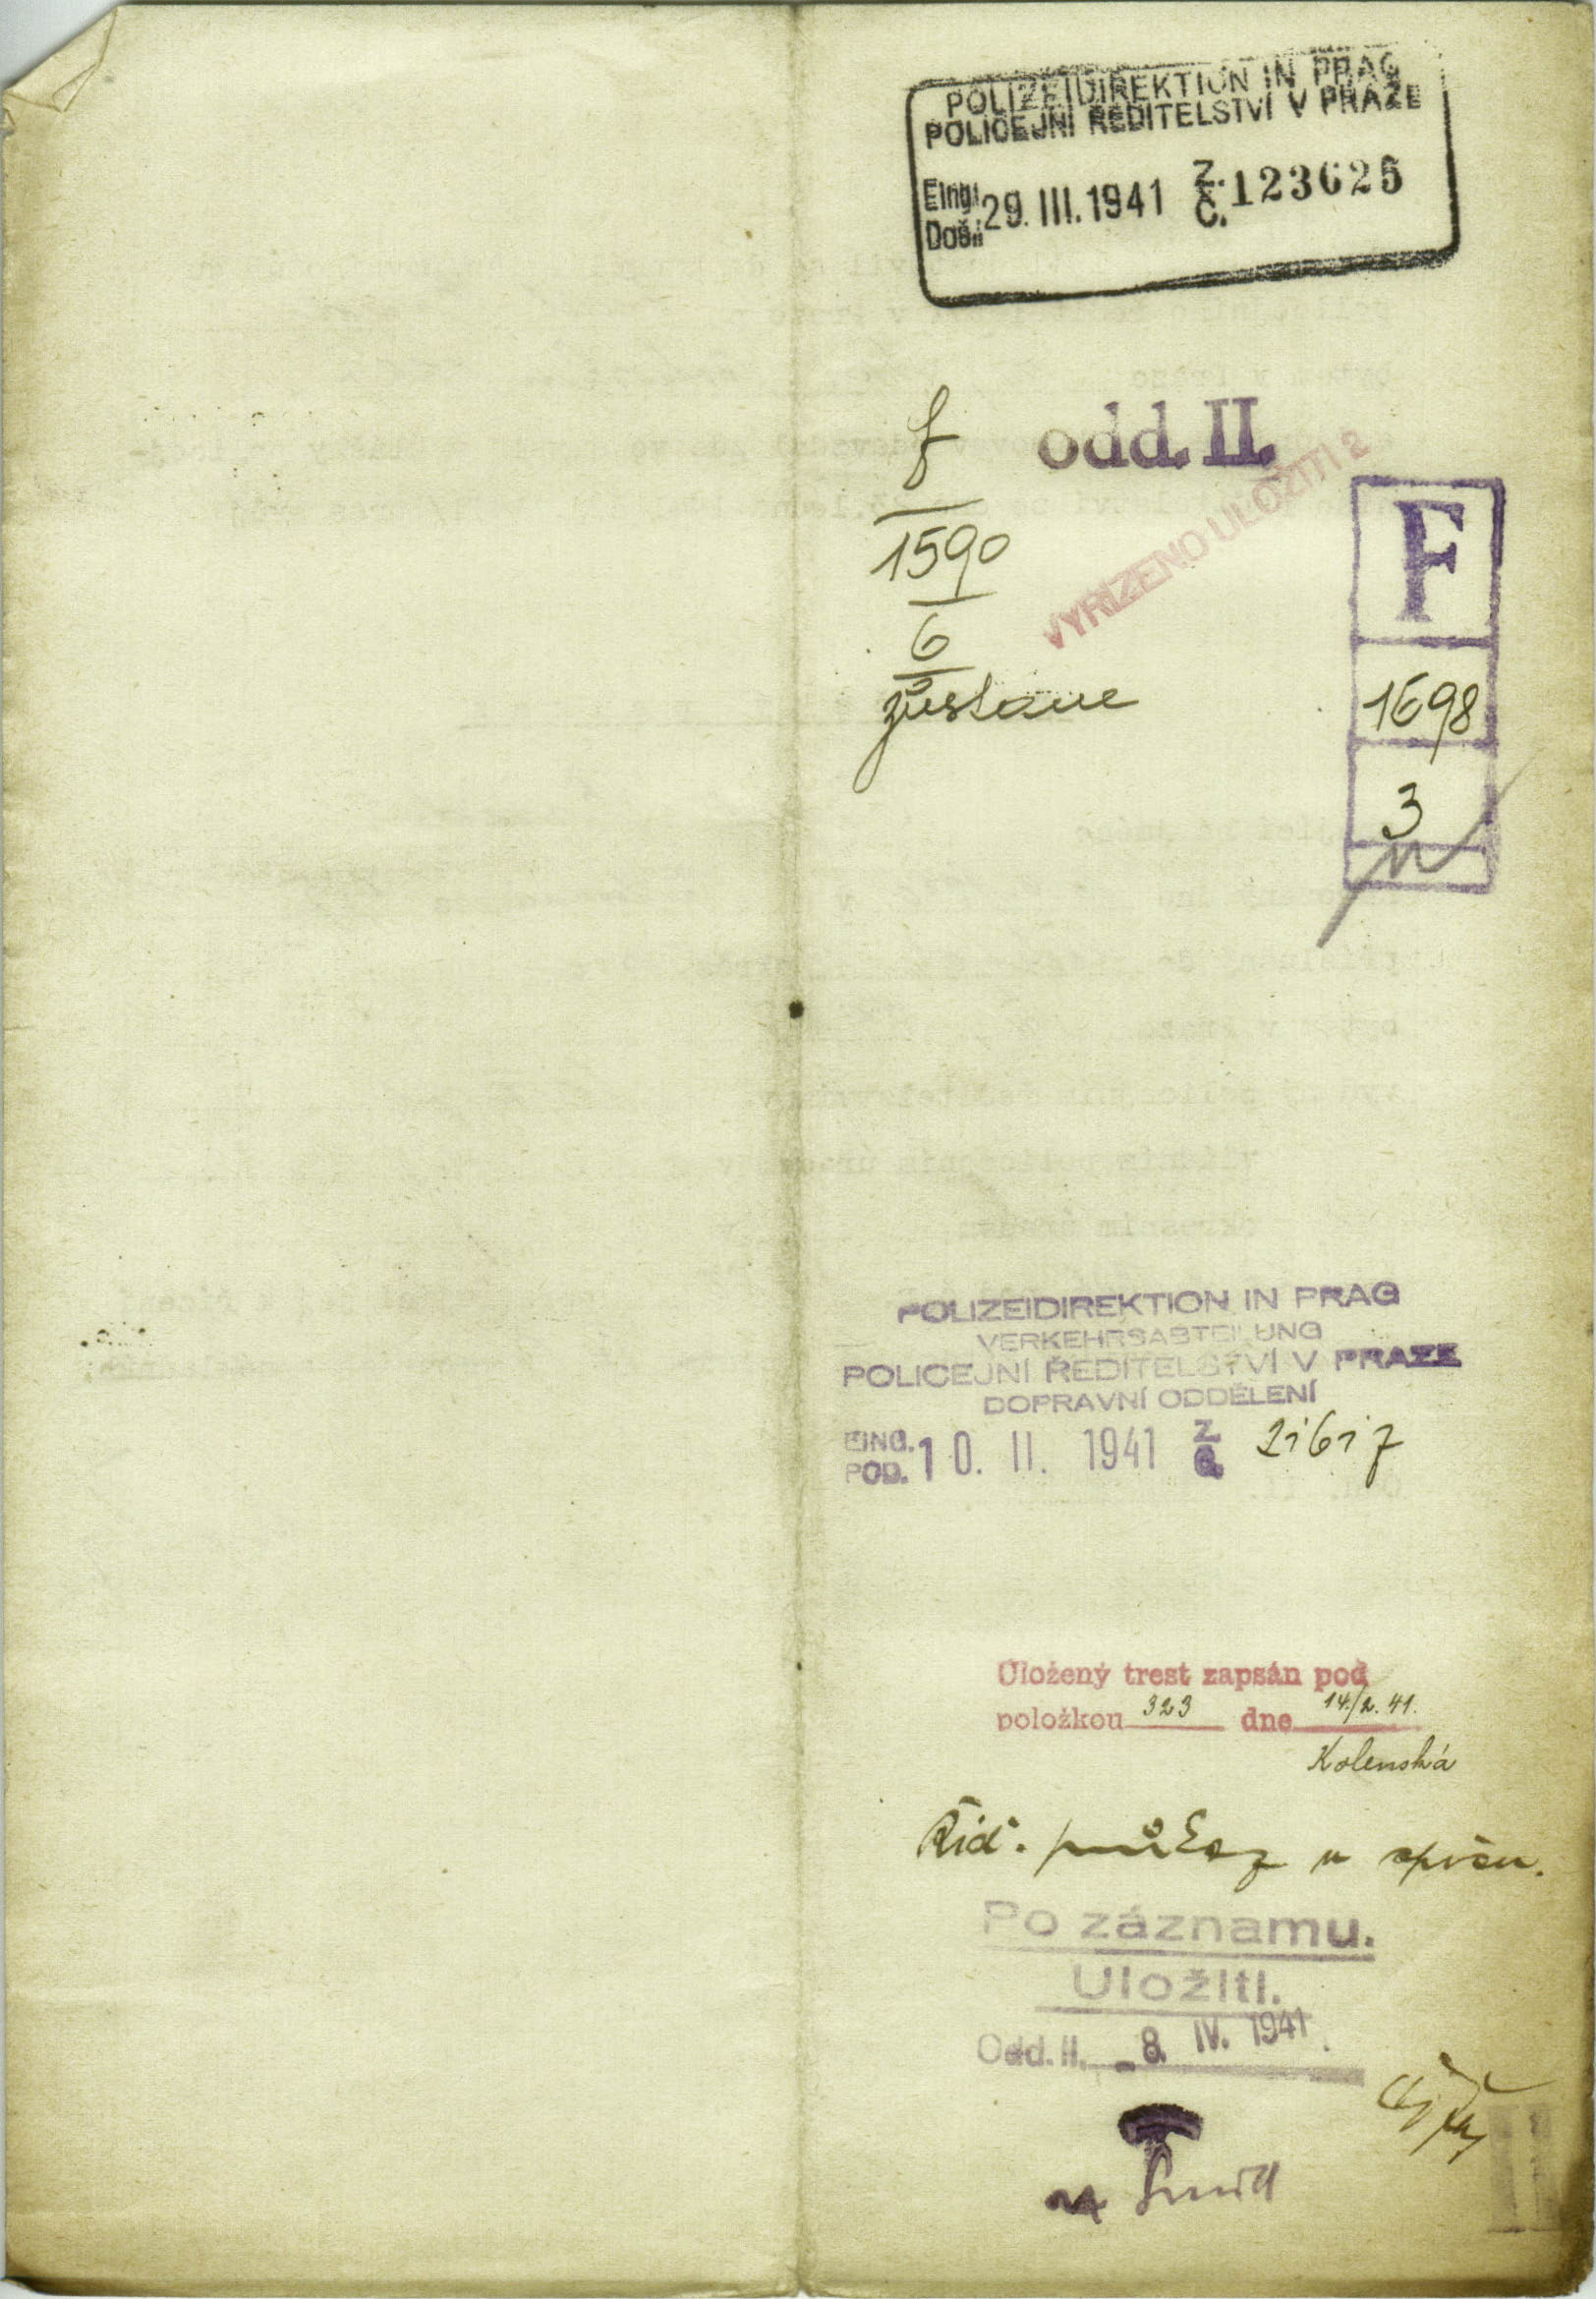 POLIZEIDIREKTION IN PRAG
POLICEJNÍ ŘEDITELSTVÍ V PRAZE
Eingl. Došlo 29. III. 1941 Z. Č. 123625
f
odd. II.
VYŘÍZENO ULOŽITI 2
1590
6
zůstane
F
1698
3
POLIZEIDIREKTION IN PRAG
VERKEHRSABTEILUNG
POLICEJNÍ ŘEDITELSTVÍ V PRAZE
DOPRAVNÍ ODDĚLENÍ
EING. POD. 10. II. 1941 Z. Č.
Uložený trest zapsán pod
položkou 323 dne 14./2. 41.
Kolenská
Řid. průkaz
Po záznamu.
Uložiti.
Odd. II. 8. IV. 1941